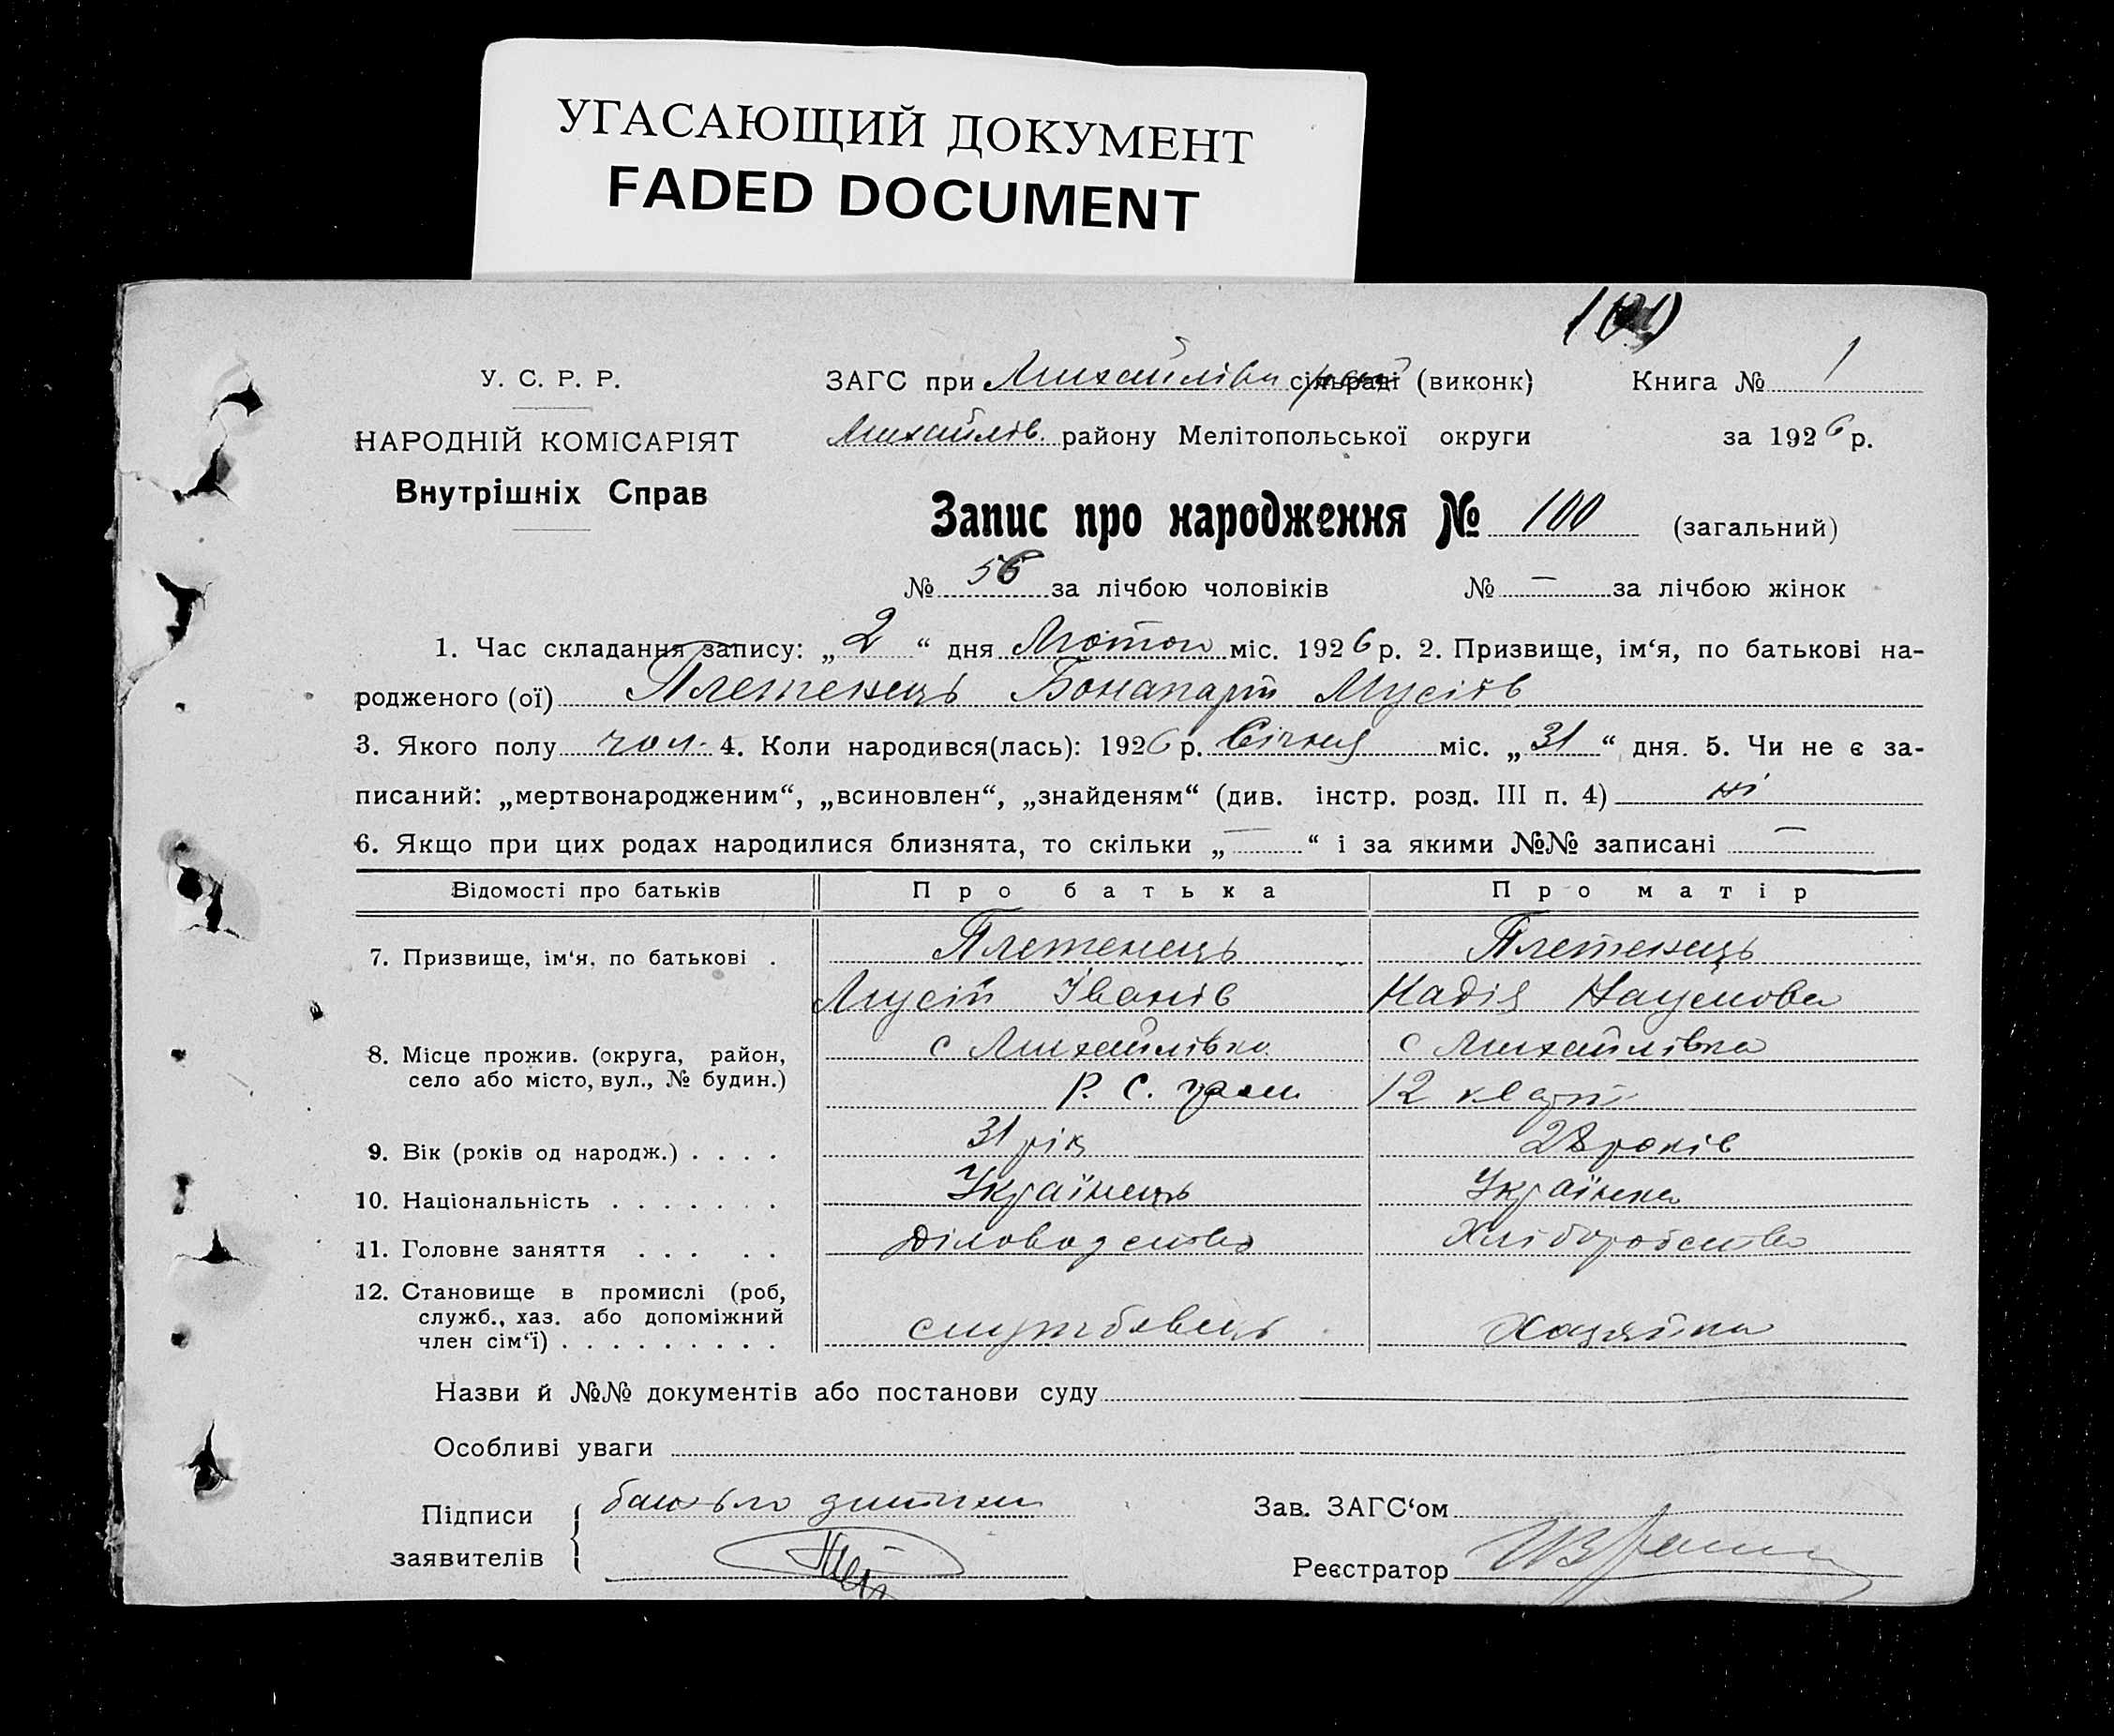 УГАСАЮЩИЙ ДОКУМЕНТ
FADED DOCUMENT
У. С. Р. Р.
НАРОДНІЙ КОМІСАРІЯТ
Внутрішніх Справ
ЗАГС при Михайлівск сільраді (виконк) Книга № 1
Михайлів. району Мелітопольської округи за 1926 р.
Запис про народження № 100 (загальний)
№ 56 за лічбою чоловіків № — за лічбою жінок
1. Час складання запису: „2“ дня Лютого міс. 1926 р. 2. Призвище, ім‘я, по батькові на-
родженого (ої) Плетенець Бонапарт Мусіїв
3. Якого полу чол. 4. Коли народився(лась): 1926 р. Січня міс. „31“ дня. 5. Чи не є за-
писаний: „мертвонародженим“, „всиновлен“, „знайденям“ (див. інстр. розд. III п. 4) ні
6. Якщо при цих родах народилися близнята, то скільки „—“ і за якими №№ записані —
Відомості про батьків Про батька Про матір
7. Призвище, ім‘я, по батькові . Плетенець Плетенець
Мусій Іванів Надія Наумова
8. Місце прожив. (округа, район, с Михайлівка с Михайлівка
село або місто, вул., № будин.) Р. С. 12 кварт
9. Вік (років од народж.) . . . . 31 рік 28 років
10. Національність . . . . . . . Українець Українка
11. Головне заняття . . . . . Діловодство Хліборобство
12. Становище в промислі (роб,
служб., хаз. або допоміжний
член сім‘ї) . . . . . . . . . службовець Хазяйка
Назви й №№ документів або постанови суду
Особливі уваги
Підписи батько дитини Зав. ЗАГС‘ом
заявителів Реєстратор